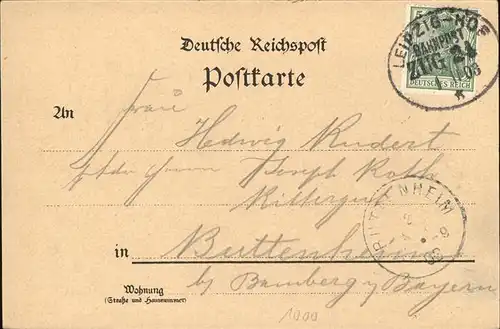 Deutsche Reichspost
Postkarte
LEIPZIG-HOF
BAHNPOST
ZUG 24
DEUTSCHES REICH
An
Frau
Hedwig Rudert
Herrn Joseph Roth
Rittergut
BUTTENHEIM
in Buttenheim
b/ Bamberg / Bayern
Wohnung
(Straße und Hausnummer)
1900